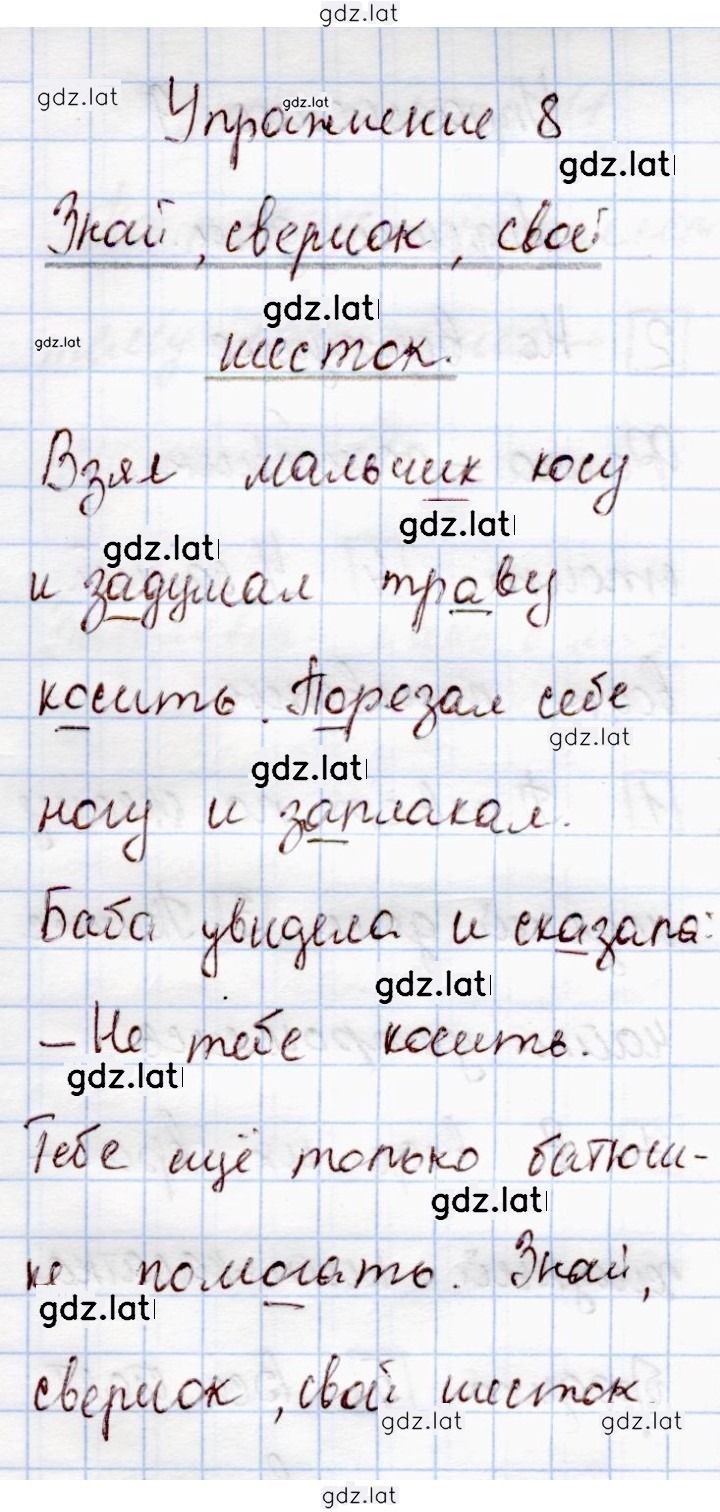 gdz.lat
gdz.lat
gdz.lat
Упражнение 8
gdz.lat
Знай, сверчок, свой
gdz.lat
gdz.lat
шесток.
Взял мальчик косу
gdz.lat
gdz.lat
и задумал траву
косить. Порезал себе
gdz.lat
gdz.lat
ногу и заплакал.
Баба увидела и сказала:
gdz.lat
- Не тебе косить.
gdz.lat
Тебе ещё только батюш-
gdz.lat
ке помогать. Знай,
gdz.lat
сверчок, свой шесток.
gdz.lat
gdz.lat
gdz.lat